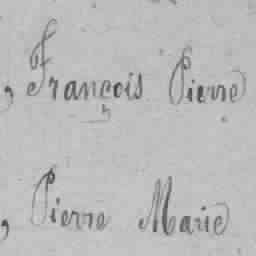 , François Pierre
, Pierre Marie